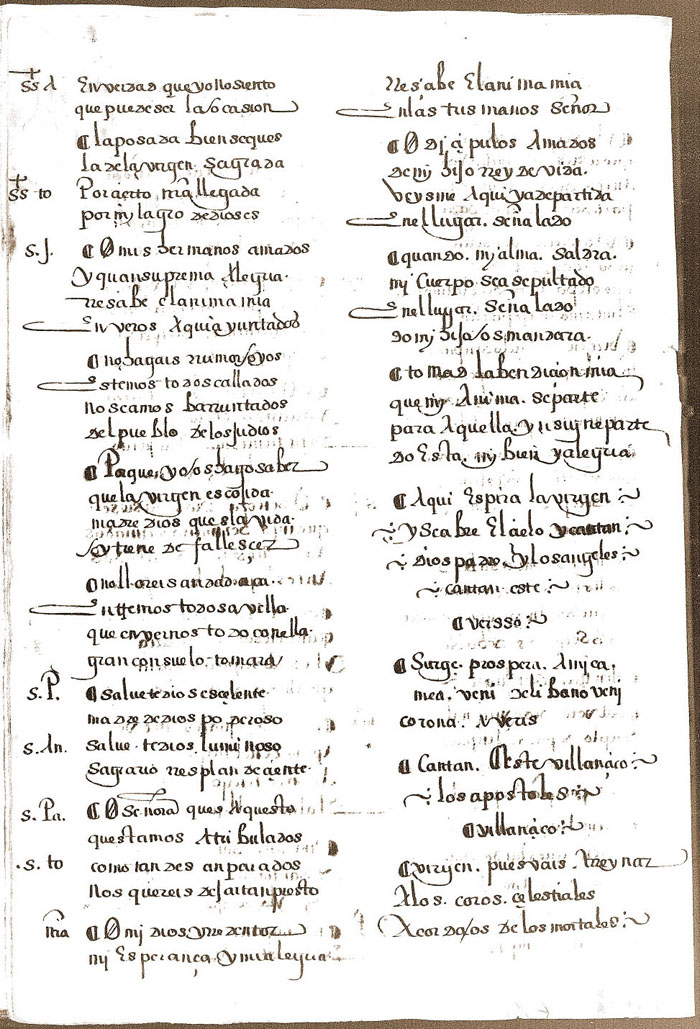 ss A En verdad que yo no siento
que puede ser la ocasion
la posada bien se ques
la de la virgen sagrada
ss to Por cierto ma llegada
por mylagro de dios es
s. J. O mis hermanos amados
y quan suprema Alegria.
resabe el anima mia
En veros Aqui ayuntados
no hagais rumor soyos
Estemos todos callados
no seamos baruntados
del pueblo de los judios
Paque yo os hago saber
que la virgen escojida
madre dios que es la vida.
oy tiene de fallescer
no lloreis
Entremos todos a vella
que en vernos todo con ella.
gran consuelo. tomara
s. P. salue te dios escelente
madre de dios poderoso
s. An. Salue. te dios. luminoso
Sagrario resplandeciente.
s. Pa. O Señora ques Aquesto
questamos Atribulados
.s. to como tan desanparados
nos quereis dejar tan presto
ma O mi dios y redentor
mi Esperança. y mi alegria
Resabe El anima mia
En las tus manos Señor
O dicipulos Amados
de mi hijo rey de vida.
veysme Aqui ya de partida
En el lugar. Señalado
quando. mi alma. Saldra.
mi Cuerpo sea sepultado
En el lugar. Señalado
do mi hijo os mandara.
tomad la bendicion mia
que my Anima. se parte
para Aquella
do Esta. my bien y alegria
Aqui Espira la virgen
y Se abre El cielo y cantan
dios padre. y los angeles
cantan este
versso
Surge. prospera. Amica.
mea. veni de libano veni
corona. Veris
Cantan. Este villançico
los apostoles
villançico
virgen. pues vais. A reynar
A los. coros. celestiales
Acordaos de los mortales